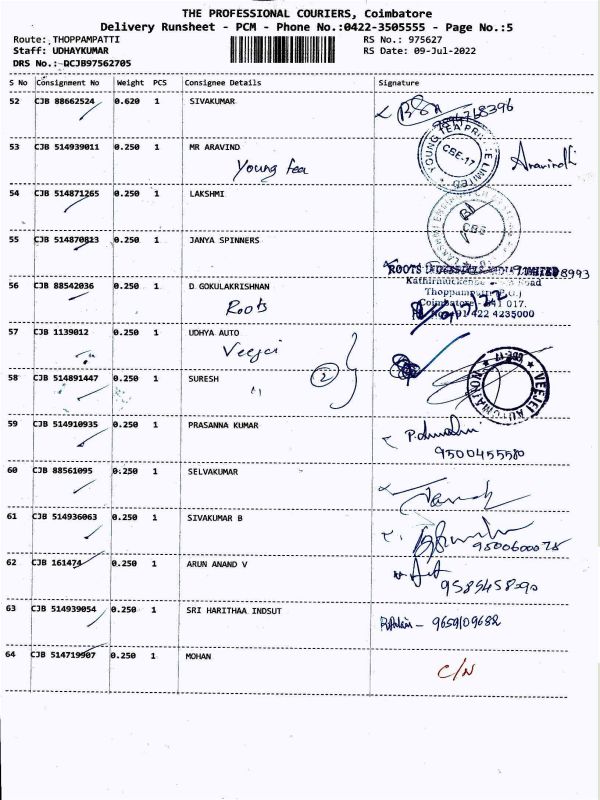 THE PROFESSIONAL COURIERS, Coimbatore
Delivery Runsheet - PCM - Phone No.:0422-3505555 - Page No.:5
Route: THOPPAMPATTI RS No.: 975627
Staff: UDHAYKUMAR RS Date: 09-Jul-2022
DRS No.: DCJB97562705
S No Consignment No Weight PCS Consignee Details Signature
52 CJB 88662524 0.620 1 SIVAKUMAR
53 CJB 514939011 0.250 1 MR ARAVIND
Young Tea
YOUNG TEA PRI E LIMITED
CBE-17
Aravindh
54 CJB 514871265 0.250 1 LAKSHMI
LAKSHMI
CBE
55 CJB 514870813 0.250 1 JANYA SPINNERS
56 CJB 88542036 0.250 1 D GOKULAKRISHNAN
Roots
ROOTS LIMITED
Road
Thoppampatti
Coimbatore - 641 017.
422 4235000
57 CJB 1139012 0.250 1 UDHYA AUTO
Veejai
58 CJB 514891447 0.250 1 SURESH
" 2
VEEJEI AUTOMATION
CBE-17
59 CJB 514910935 0.250 1 PRASANNA KUMAR
9500455580
60 CJB 88561095 0.250 1 SELVAKUMAR
61 CJB 514936063 0.250 1 SIVAKUMAR B
9500600078
62 CJB 161474 0.250 1 ARUN ANAND V
63 CJB 514939054 0.250 1 SRI HARITHAA INDSUT
9659109682
64 CJB 514719907 0.250 1 MOHAN
C/N